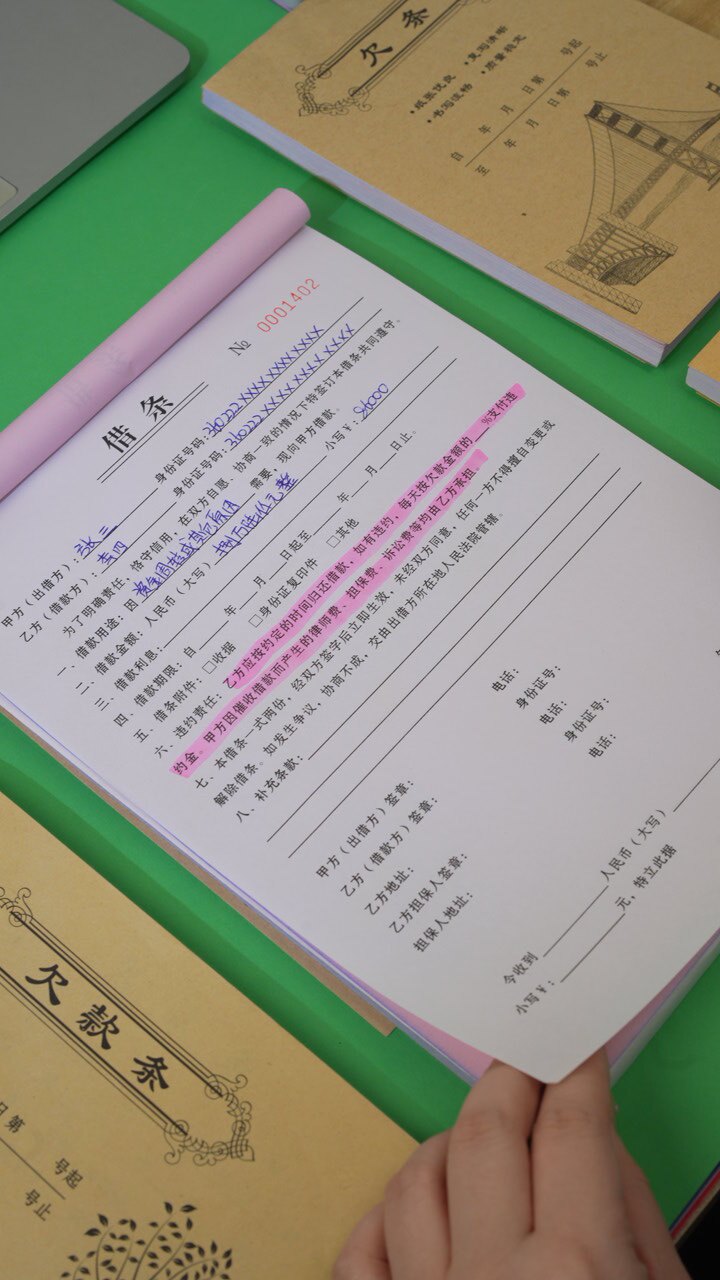 欠条
·纸张优良 ·复写清晰
·书写流畅 ·质量稳定
自 年 月 日第 号起
至 年 月 日第 号止
№ 0001402
借条
甲方（出借方）：张三 身份证号码：310222XXXXXXXXXXX
乙方（借款方）：李四 身份证号码：310222XXXXXXXXXXX
为了明确责任、恪守信用，在双方自愿、协商一致的情况下特签订本借条共同遵守。
一、借款用途：因资金周转或其它原因 需要，现向甲方借款。
二、借款金额：人民币（大写） 捌万陆仟元整 小写¥：86000
三、借款利息：
四、借款期限：自 年 月 日起至 年 月 日止。
五、借条附件：□收据 □身份证复印件 □其他
六、违约责任：乙方应按约定的时间归还借款，如有违约，每天按欠款金额的 %支付违
约金。甲方因催收借款而产生的律师费、担保费、诉讼费等均由乙方承担。
七、本借条一式两份，经双方签字后立即生效，未经双方同意，任何一方不得擅自变更或
解除借条。如发生争议，协商不成，交由出借方所在地人民法院管辖。
八、补充条款：
甲方（出借方）签章： 电话：
乙方（借款方）签章： 身份证号：
乙方地址： 电话：
乙方担保人签章： 身份证号：
担保人地址： 电话：
今收到 人民币（大写）
小写¥： 元，特立此据
欠款条
日第 号起
号止